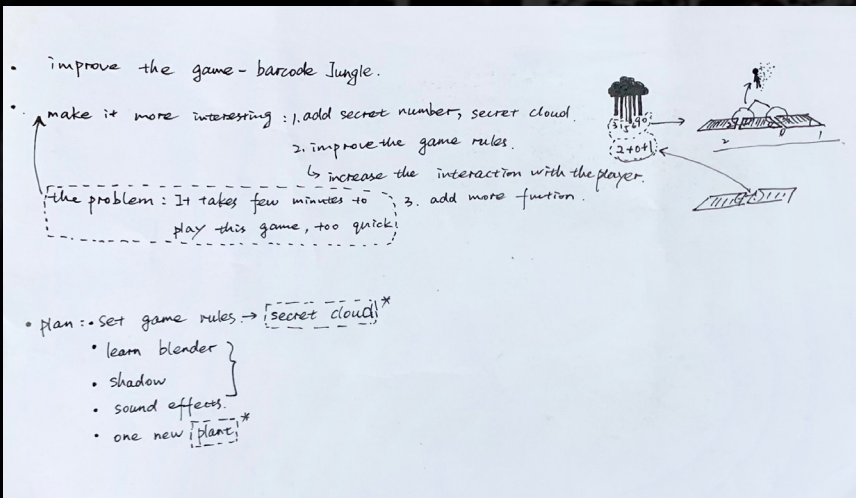 • improve the game - barcode Jungle.
• make it more interesting : 1. add secret number, secret cloud.
2. improve the game rules.
↳ increase the interaction with the player.
the problem : It takes few minutes to
play this game, too quick!
3. add more fuction.
2+0+1
2
0
1
• plan : • set game rules. → secret cloud*
• learn blender
• shadow
• sound effects.
• one new plant*